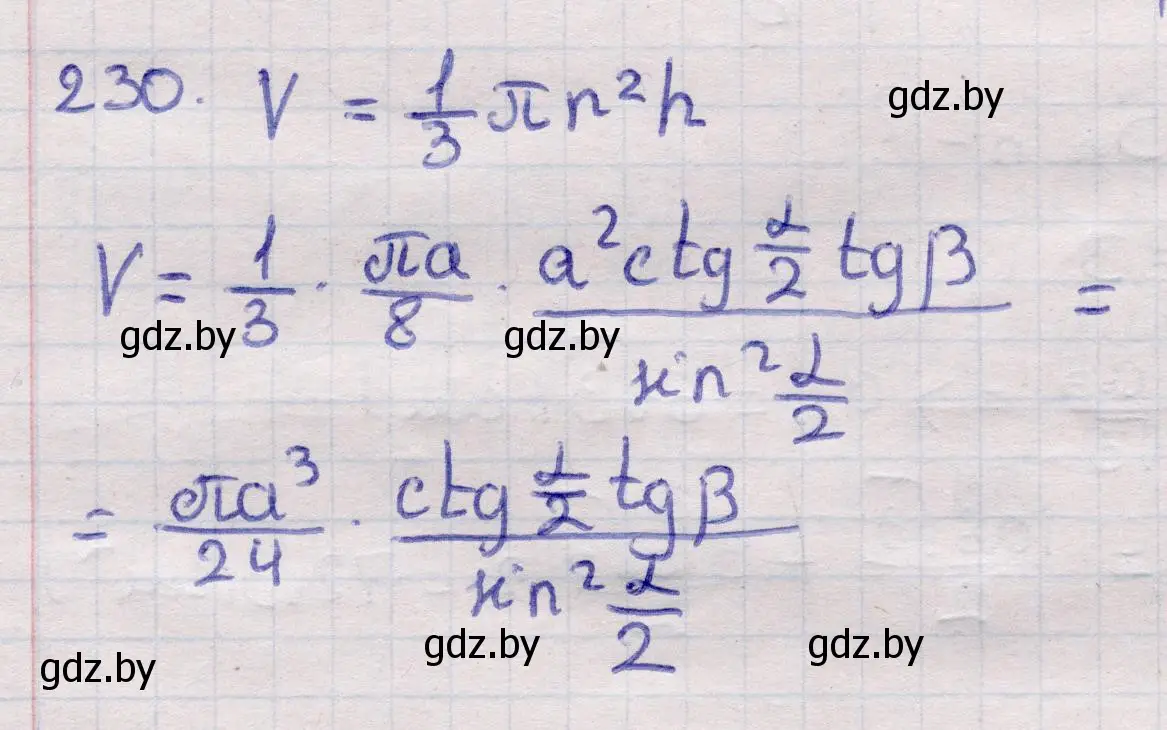 230. V = 1/3 πr²h
gdz.by
V = 1/3 · πa/8 · (a² ctg α/2 tg β)/(sin² α/2) =
gdz.by gdz.by
= πa³/24 · (ctg α/2 tg β)/(sin² α/2)
gdz.by gdz.by gdz.by